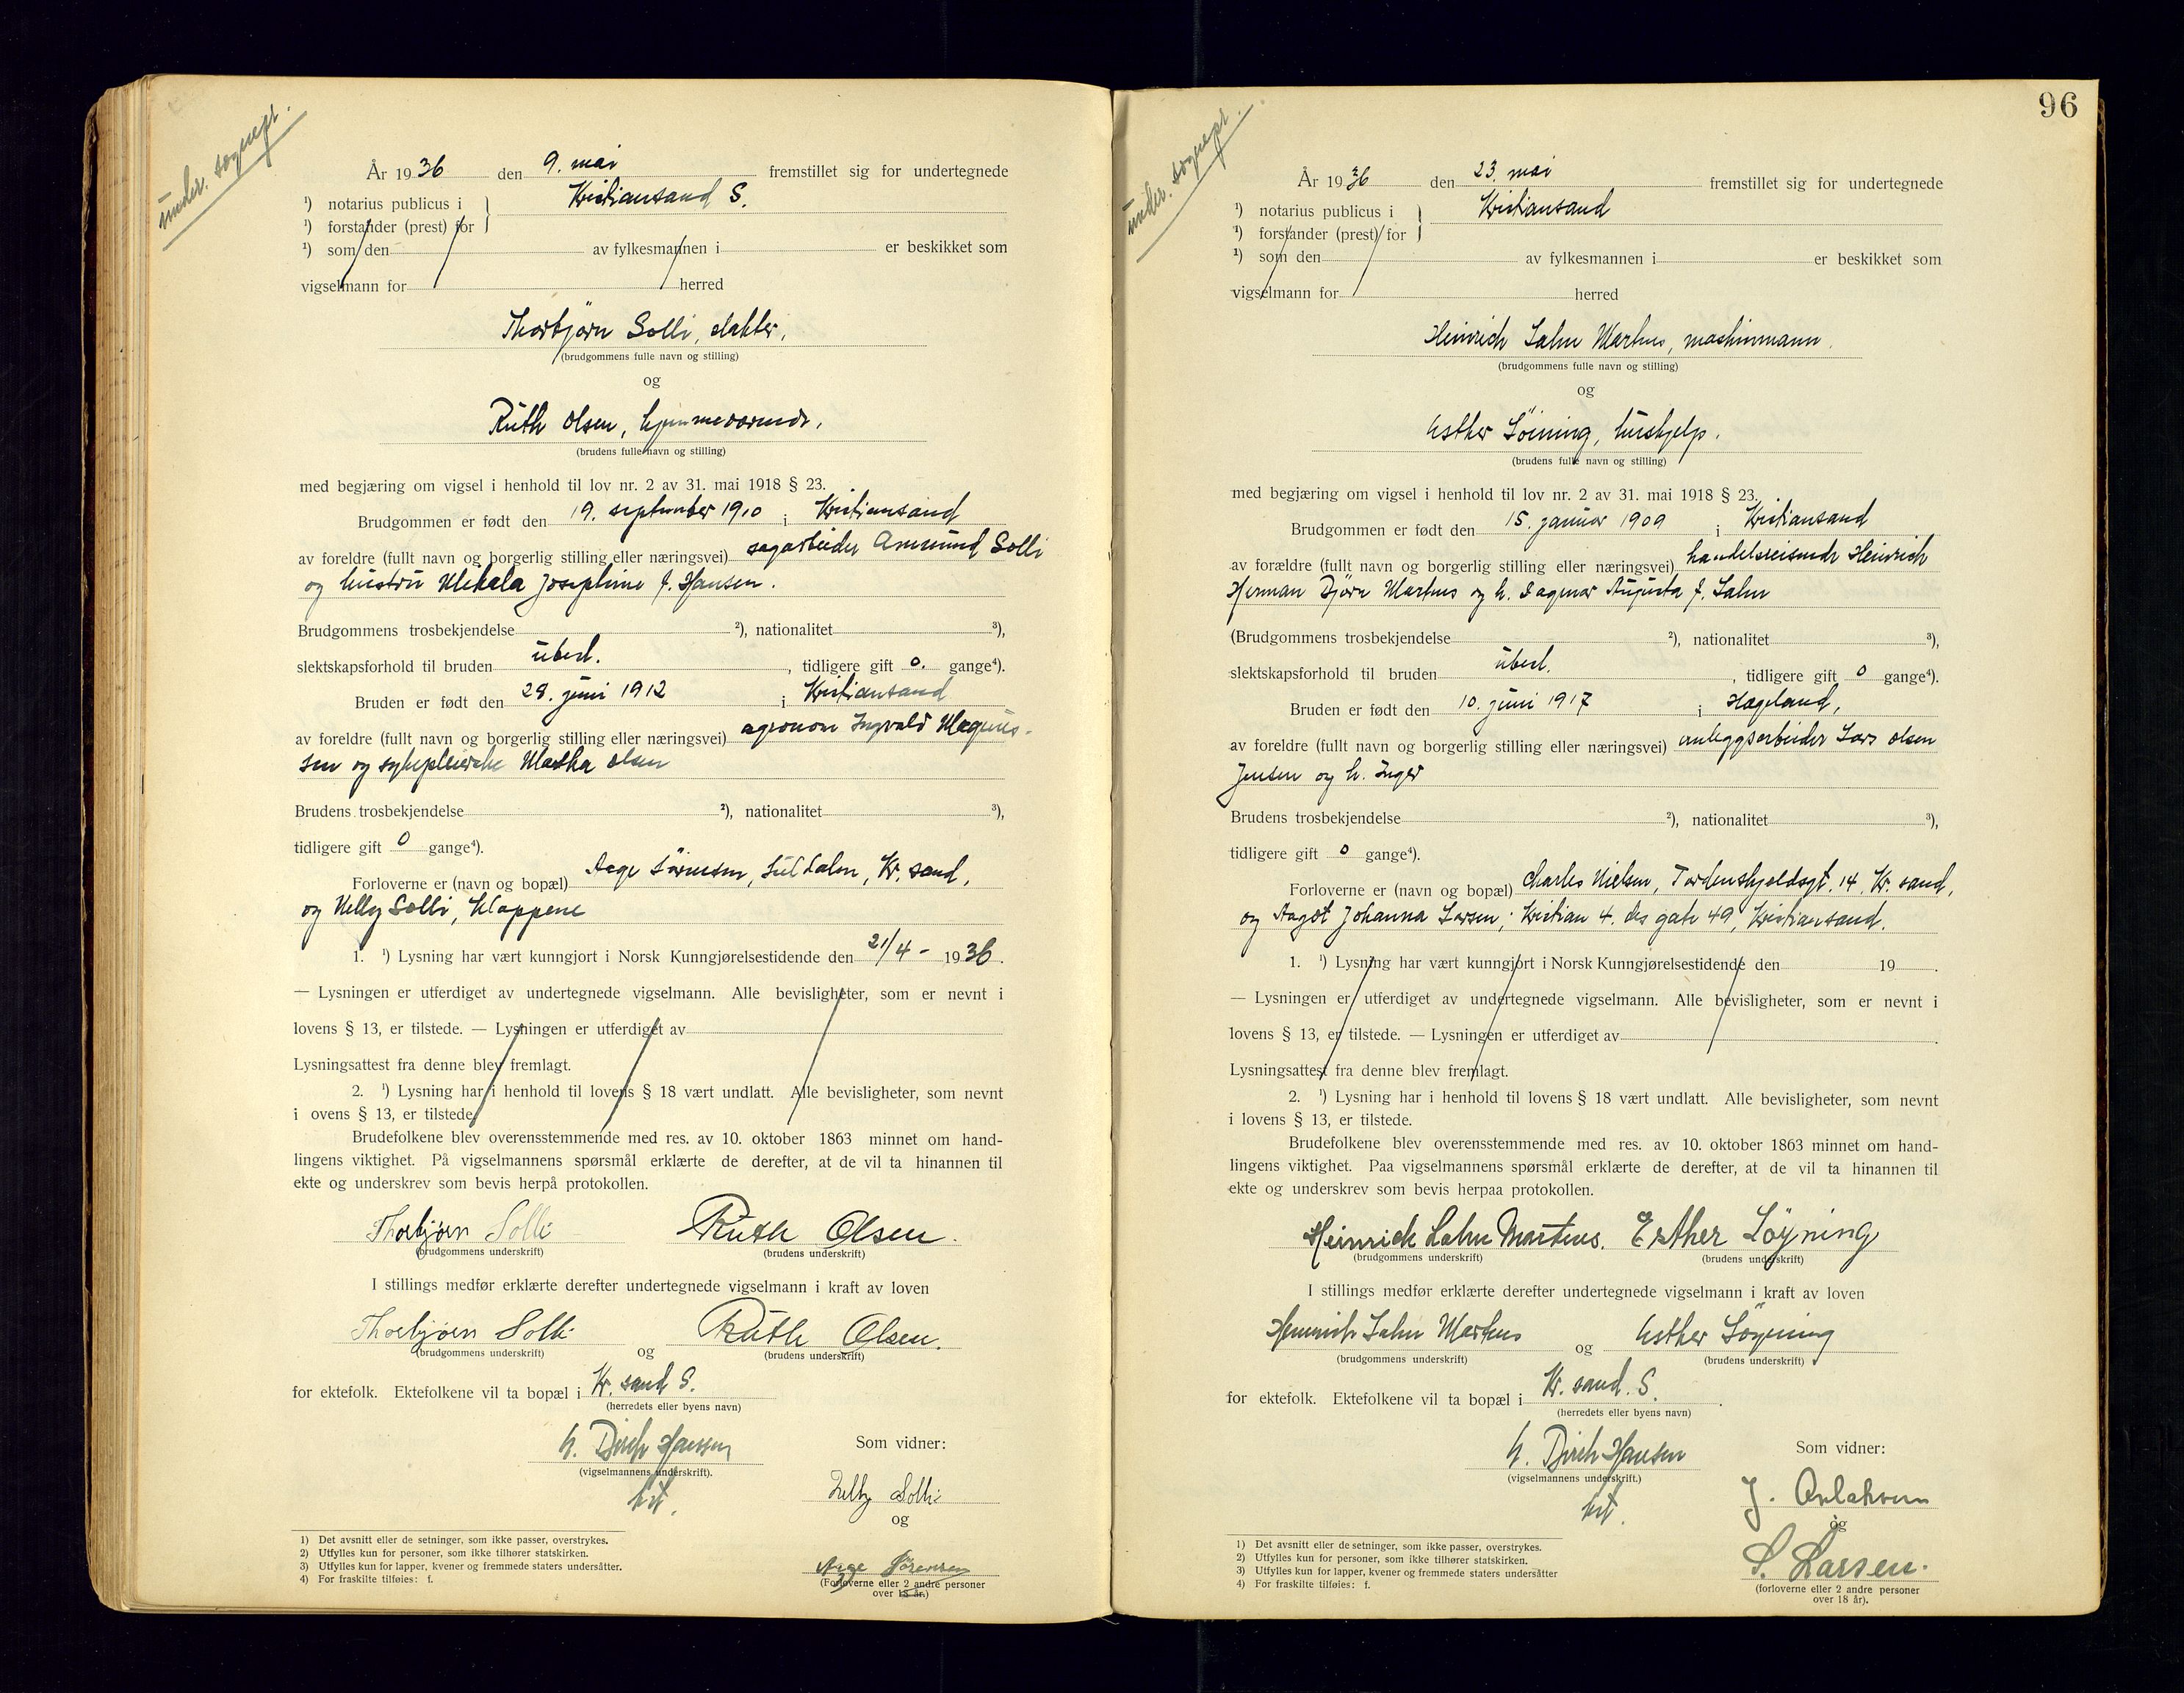 under. sognepr.
År 1936 den 9. mai fremstillet sig for undertegnede
¹) notarius publicus i } Kristiansand S.
¹) forstander (prest) for
¹) som den av fylkesmannen i er beskikket som
vigselmann for herred
Thorbjørn Solli, slakter,
(brudgommens fulle navn og stilling)
og
Ruth Olsen, hjemmeværende,
(brudens fulle navn og stilling)
med begjæring om vigsel i henhold til lov nr. 2 av 31. mai 1918 § 23.
Brudgommen er født den 19. september 1910 i Kristiansand
av foreldre (fullt navn og borgerlig stilling eller næringsvei) sagarbeider Solli
og hustru Josephine f. Hansen.
Brudgommens trosbekjendelse ²), nationalitet ³),
slektskapsforhold til bruden ubesl. , tidligere gift 0. gange⁴).
Bruden er født den 28. juni 1912 i Kristiansand
av foreldre (fullt navn og borgerlig stilling eller næringsvei) agronom Ingvald Magnus-
sen og sykepleierske Martha Olsen
Brudens trosbekjendelse ²), nationalitet ³),
tidligere gift 0 gange⁴).
Forloverne er (navn og bopæl) Aage Sörensen, Kr. sand,
og Nelly Solli, Kloppene
1. ¹) Lysning har vært kunngjort i Norsk Kunngjørelsestidende den 21/4 - 1936.
— Lysningen er utferdiget av undertegnede vigselmann. Alle bevisligheter, som er nevnt i
lovens § 13, er tilstede. — Lysningen er utferdiget av
Lysningsattest fra denne blev fremlagt.
2. ¹) Lysning har i henhold til lovens § 18 vært undlatt. Alle bevisligheter, som nevnt
i ovens § 13, er tilstede.
Brudefolkene blev overensstemmende med res. av 10. oktober 1863 minnet om hand-
lingens viktighet. På vigselmannens spørsmål erklærte de derefter, at de vil ta hinannen til
ekte og underskrev som bevis herpå protokollen.
Thorbjørn Solli Ruth Olsen.
(brudgommens underskrift) (brudens underskrift)
I stillings medfør erklærte derefter undertegnede vigselmann i kraft av loven
Thorbjørn Solli og Ruth Olsen.
(brudgommens underskrift) (brudens underskrift)
for ektefolk. Ektefolkene vil ta bopæl i Kr. sand S.
(herredets eller byens navn)
Birch Hansen
(vigselmannens underskrift).
Som vidner:
Nelly Solli
og
Aage Sörensen
(Forloverne eller 2 andre personer
over 18 år.)
1) Det avsnitt eller de setninger, som ikke passer, overstrykes.
2) Utfylles kun for personer, som ikke tilhører statskirken.
3) Utfylles kun for lapper, kvener og fremmede staters undersåtter.
4) For fraskilte tilføies: f.
96
under. sognepr.
År 1936 den 23. mai fremstillet sig for undertegnede
¹) notarius publicus i } Kristiansand
¹) forstander (prest) for
¹) som den av fylkesmannen i er beskikket som
vigselmann for herred
Heinrich Lahn Martens, maskinmann.
(brudgommens fulle navn og stilling)
og
Esther Löining, hushjelp.
(brudens fulle navn og stilling)
med begjæring om vigsel i henhold til lov nr. 2 av 31. mai 1918 § 23.
Brudgommen er født den 15. januar 1909 i Kristiansand
av forældre (fullt navn og borgerlig stilling eller næringsvei) handelsreisende Heinrich
Herman Björn Martens og h. Dagmar Augusta f. Lahn
(Brudgommens trosbekjendelse ²), nationalitet ³),
slektskapsforhold til bruden ubesl. , tidligere gift 0 gange⁴).
Bruden er født den 10. juni 1917 i Hægeland,
av foreldre (fullt navn og borgerlig stilling eller næringsvei) anleggsarbeider Lars Olsen
Jensen og h. Inger
Brudens trosbekjendelse ²), nationalitet ³),
tidligere gift 0 gange⁴).
Forloverne er (navn og bopæl) Charles Nielsen, Tordenskjoldsgt. 14, Kr. sand,
og Aagot Johanna Larsen, Kristian 4. des gate 49, Kristiansand.
1. ¹) Lysning har vært kunngjort i Norsk Kunngjørelsestidende den 19 .
— Lysningen er utferdiget av undertegnede vigselmann. Alle bevisligheter, som er nevnt i
lovens § 13, er tilstede. — Lysningen er utferdiget av .
Lysningsattest fra denne blev fremlagt.
2. ¹) Lysning har i henhold til lovens § 18 vært undlatt. Alle bevisligheter, som nevnt
i lovens § 13, er tilstede.
Brudefolkene blev overensstemmende med res. av 10. oktober 1863 minnet om hand-
lingens viktighet. Paa vigselmannens spørsmål erklærte de derefter, at de vil ta hinannen til
ekte og underskrev som bevis herpaa protokollen.
Heinrich Lahn Martens. Esther Löyning
(brudgommens underskrift) (brudens underskrift)
I stillings medfør erklærte derefter undertegnede vigselmann i kraft av loven
Heinrich Lahn Martens og Esther Löyning
(brudgommens underskrift) (brudens underskrift)
for ektefolk. Ektefolkene vil ta bopæl i Kr. sand. S.
(herredets eller byens navn)
Birch Hansen
(vigselmannens underskrift.)
Som vidner:
J.
og
S. Larsen.
(forloverne eller 2 andre personer
over 18 år).
1) Det avsnitt eller de setninger, som ikke passer, overstrykes.
2) Utfylles kun for personer, som ikke tilhører statskirken.
3) Utfylles kun for lapper, kvener og fremmede staters undersåtter
4) For fraskilte tilføies: f.